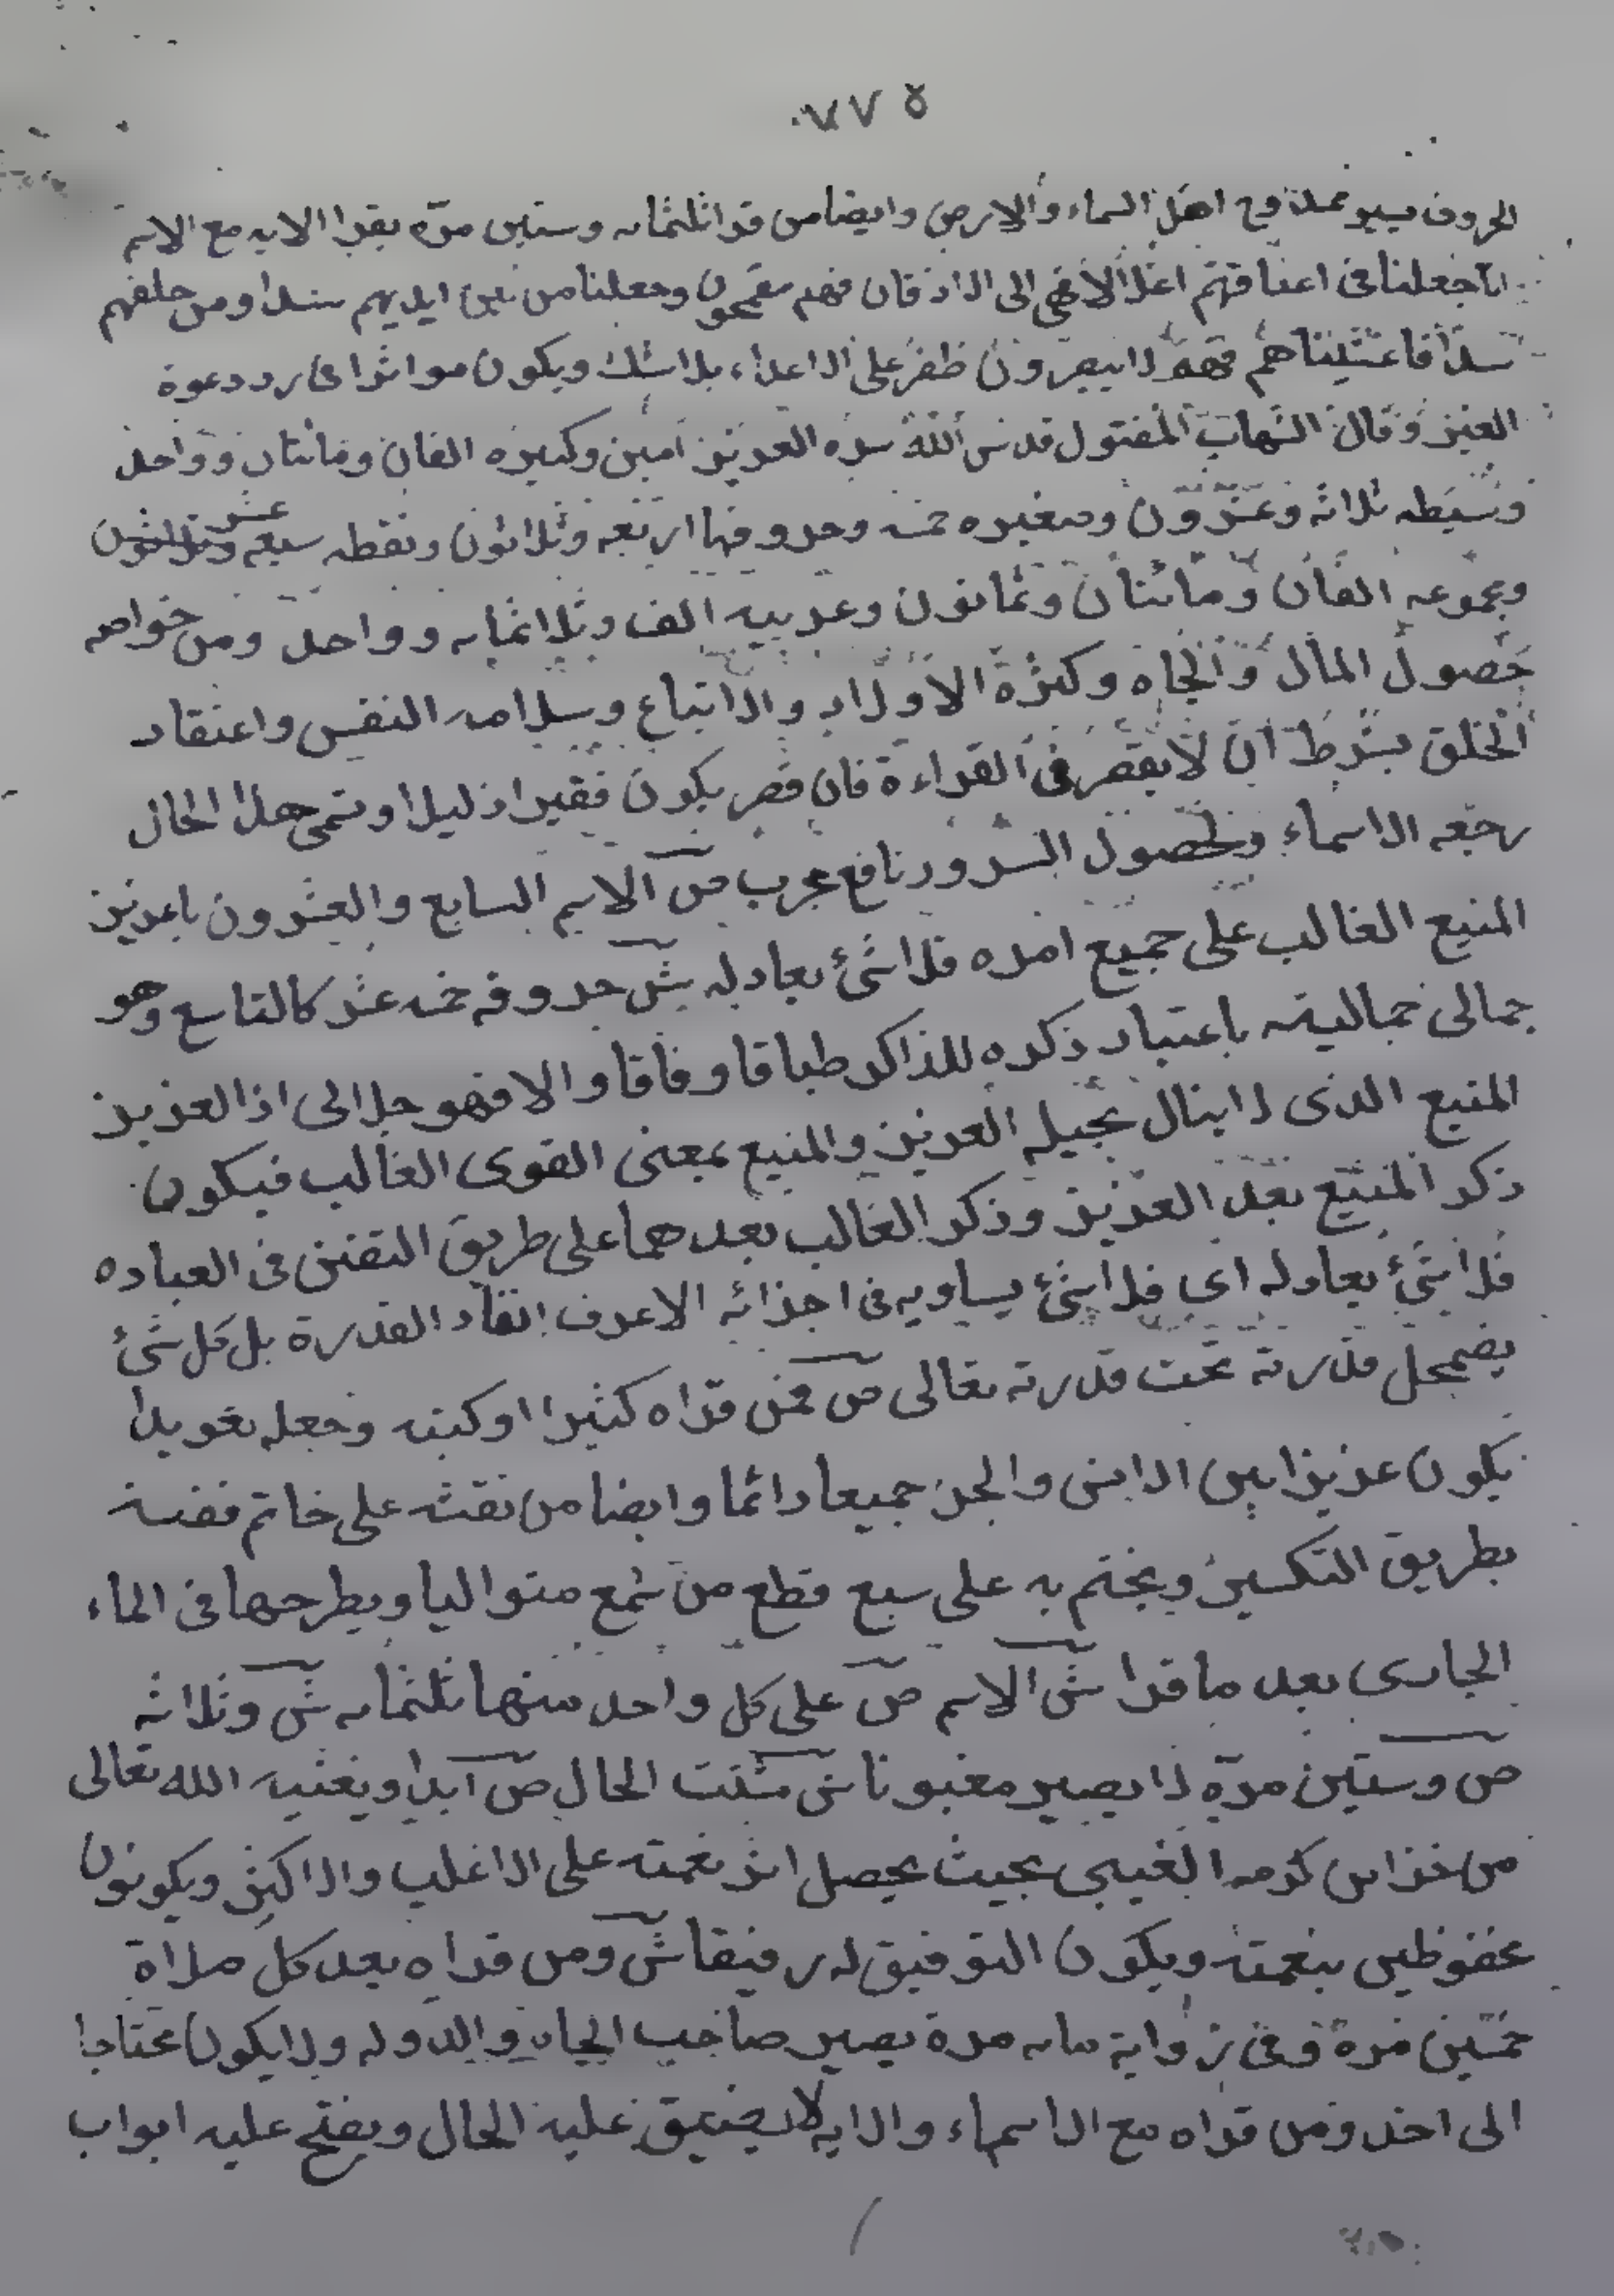 ٥٧٧
الحروف فيبو اهل السماء والارض وايضا من قرا ثلثمائه وستين مرّه يقرا الايه مع الاسم
انا جعلنا فى اعناقهم اغلالا فهى الى الاذقان فهم مقمحون وجعلنا من بين ايديهم سدا ومن خلفهم
سدّا فاغشيناهم فهم لا يبصرون ظفر على الاعداء بلا شك ويكون موثرا فى رد دعوة
العزيز وقال الشهاب المقتول قدس الله سره العزيز امين وكبيره الفان ومائتان وواحد
وسيطه ثلاثه وعشرون وصغيره خمسه وحروفها اربعه وثلاثون ونقطه سبعه عشر
ومجموعه الفان ومائتان وثمانون وعربيه الف وثلاثمايه وواحد ومن خواصه
حصول المال والجاه وكثرة الاولاد والاتباع وسلامه النفس واعتقاد
الخلق بشرط ان لا يقصر فى القراءة فان قصر يكون فقيرا ذليلا وتسمى هذا الحال
رجعه الاسماء ولحصول السرور نافع مجرب ص الاسم السابع والعشرون يا عزيز
المنيع الغالب على جميع امره فلا شئ يعادله ش حروفه خمسه عشر كالتاسع وهو
جمالى جماليته باعتبار ذكره للذاكر طباقا وفاقا والا فهو جلالى اذ العزيز
المنيع الذى لا ينال بحيله العزيز والمنيع بمعنى القوى الغالب فيكون
ذكر المنيع بعد العزيز وذكر الغالب بعدهما على طريق التفنن فى العباده
فلا شئ يعادله اى فلا شئ يساويه فى اجزائه الاعرف انقاد القدرة بل كل شئ
يضمحل قدرته تحت قدرته تعالى ص فمن قراه كثيرا او كتبه وجعله تعويذا
يكون عزيزا بين الانس والجن جميعا دائما وايضا من نقشه على خاتم فضة
بطريق التكسير ويختم به على سبع قطع من شمع متواليا ويطرحها فى الماء
الجارى بعد ما قرا ش الاسم ص على كل واحد منها ثلثمايه ش وثلاثه
ص وستين مرّه لا يصير مغبونا ش مشتت الحال ص ابدا ويغنيه الله تعالى
من خزاين كرمه الغيبى بحيث يحصل اثر نعمته على الاغلب والاكثر ويكونون
محفوظين بنعمته ويكون التوفيق له رفيقا ش ومن قراه بعد كل صلاة
خمسين مرة وفى رواية مايه مرة يصير صاحب الجاه والدوله ولا يكون محتاجا
الى احد ومن قراه مع الاسماء والايه لا يضيق عليه الحال ويفتح عليه ابواب